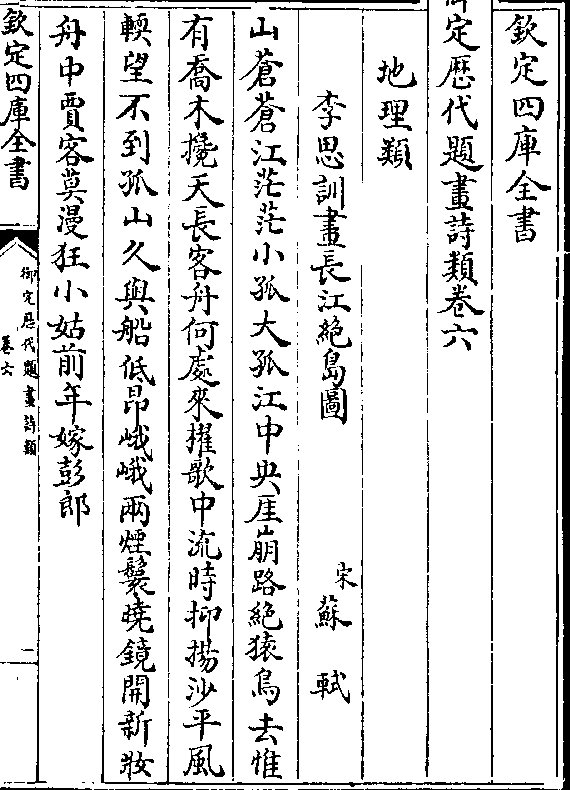 欽定四庫全書
御定歴代題畫詩類卷六
地理類
李思訓畫長江絶島圖
宋蘇軾
山蒼蒼江茫茫小孤大孤江中央厓崩路絶猿鳥去惟
有喬木攙天長客舟何處來櫂歌中流時抑揚沙平風
輭望不到孤山久與船低昂峨峨兩煙鬟曉鏡開新妝
舟中賈客莫漫狂小姑前年嫁彭郎
欽定四庫全書
御定歴代題畫詩類
卷六
一